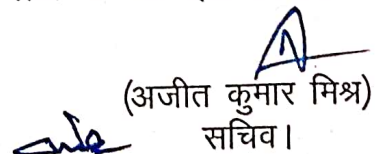 (अजीत कुमार मिश्र)
सचिव।